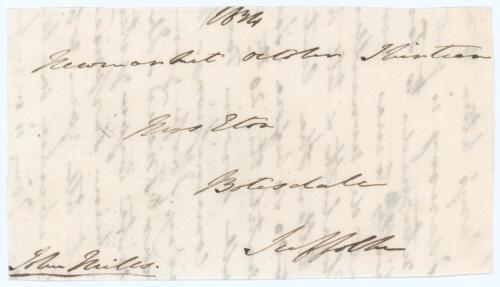 1834
Newmarket October Thirteen
Mrs Eton
Botesdale
Suffolk
John Mills.